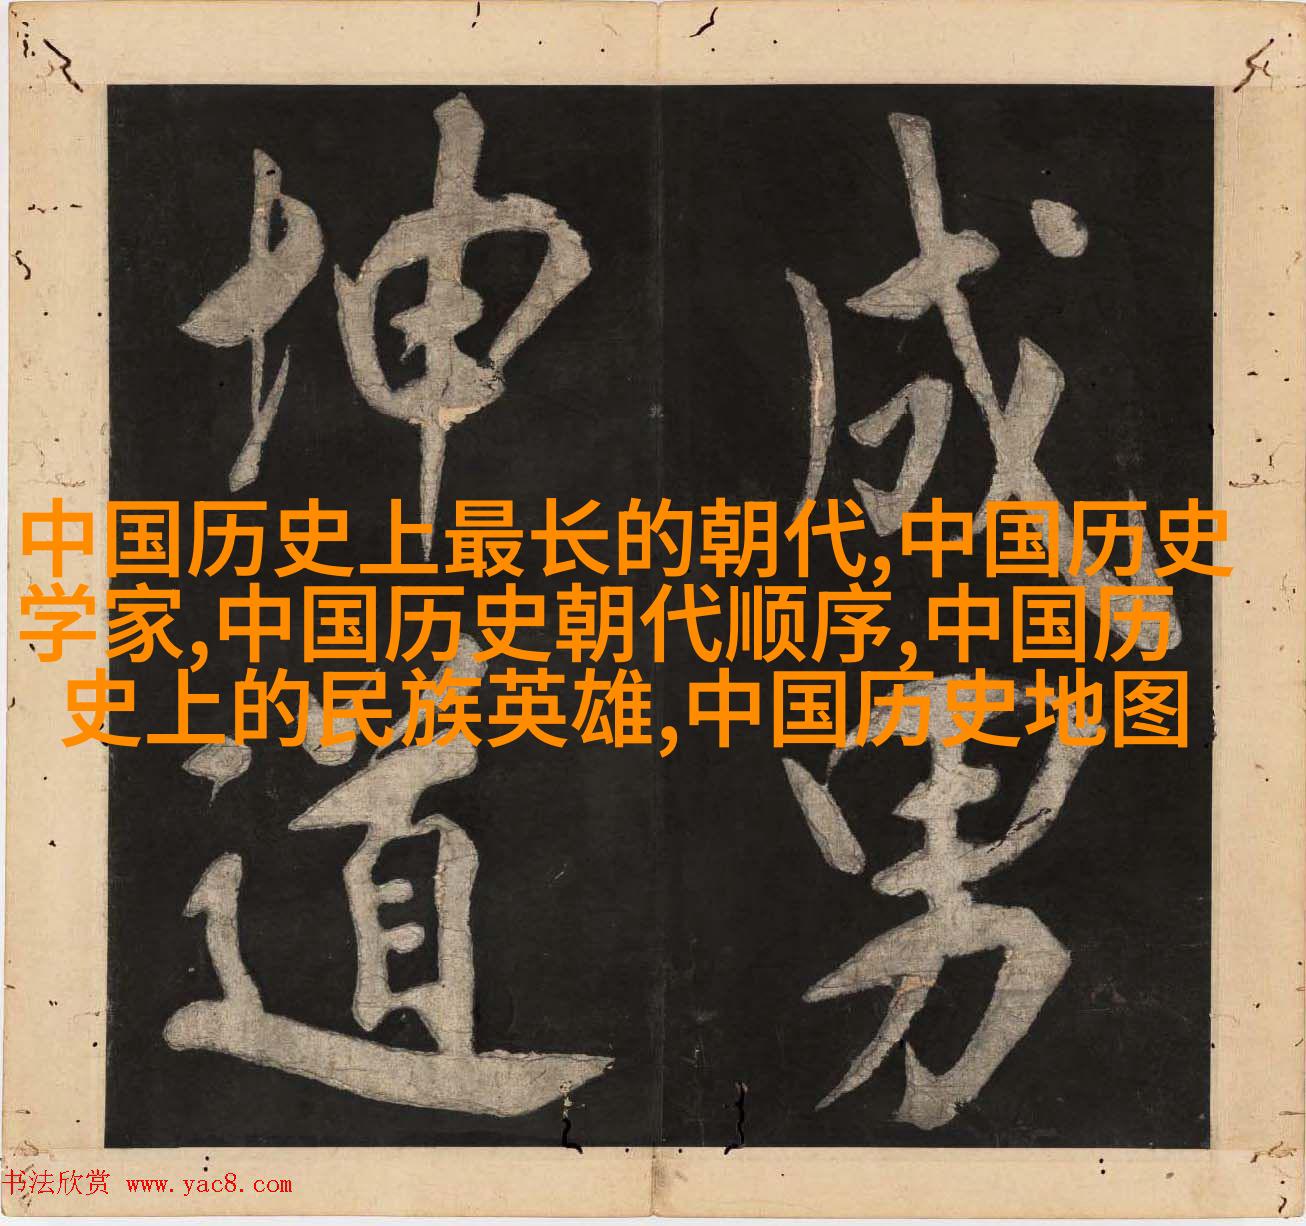 成男
坤道
中国历史上最长的朝代,中国历史
学家,中国历史朝代顺序,中国历
史上的民族英雄,中国历史地图
书法欣赏 www.yac8.com